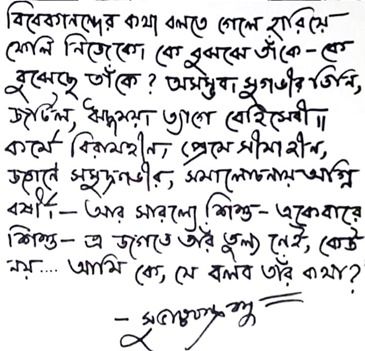 বিবেকানন্দের কথা বলতে গেলে হারিয়ে
ফেলি নিজেকে। কে বুঝবে তাঁকে – কে
বুঝেছে তাঁকে? অসম্ভব। সুগভীর তিনি,
জটিল, ঋদ্ধময়। ত্যাগে বেহিসেবী॥
কর্মে বিরামহীন, প্রেমে সীমাহীন,
জ্ঞানে সমুদ্রগভীর, সমালোচনায় অগ্নি
বর্ষী। – আর সারল্যে শিশু – একেবারে
শিশু – এ জগতে তাঁর তুল্য নেই, কেউ
নয়.... আমি কে, যে বলব তাঁর কথা?